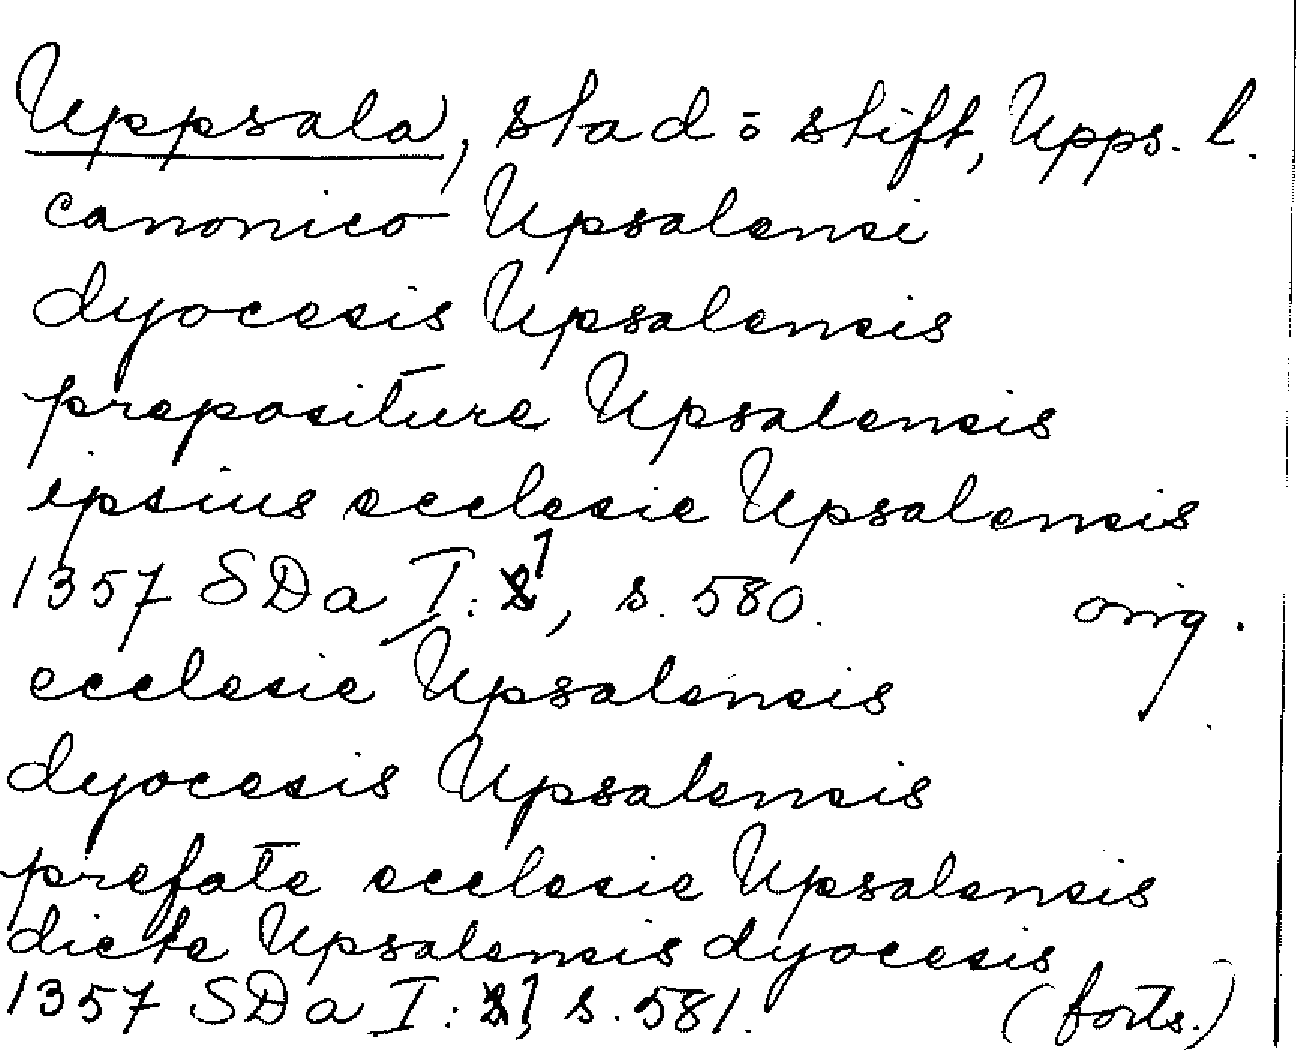 Uppsala, stad o stift, Upps. l.
canonico Upsalensi
dyocesis Upsalensis
prepositure Upsalensis
ipsius ecclesie Upsalensis
1357 SDa I:1, s. 580. orig.
ecclesie Upsalensis
dyocesis Upsalensis
prefate ecclesie Upsalensis
dicte Upsalensis dyocesis
1357 SDa I:1, s. 581. (forts.)